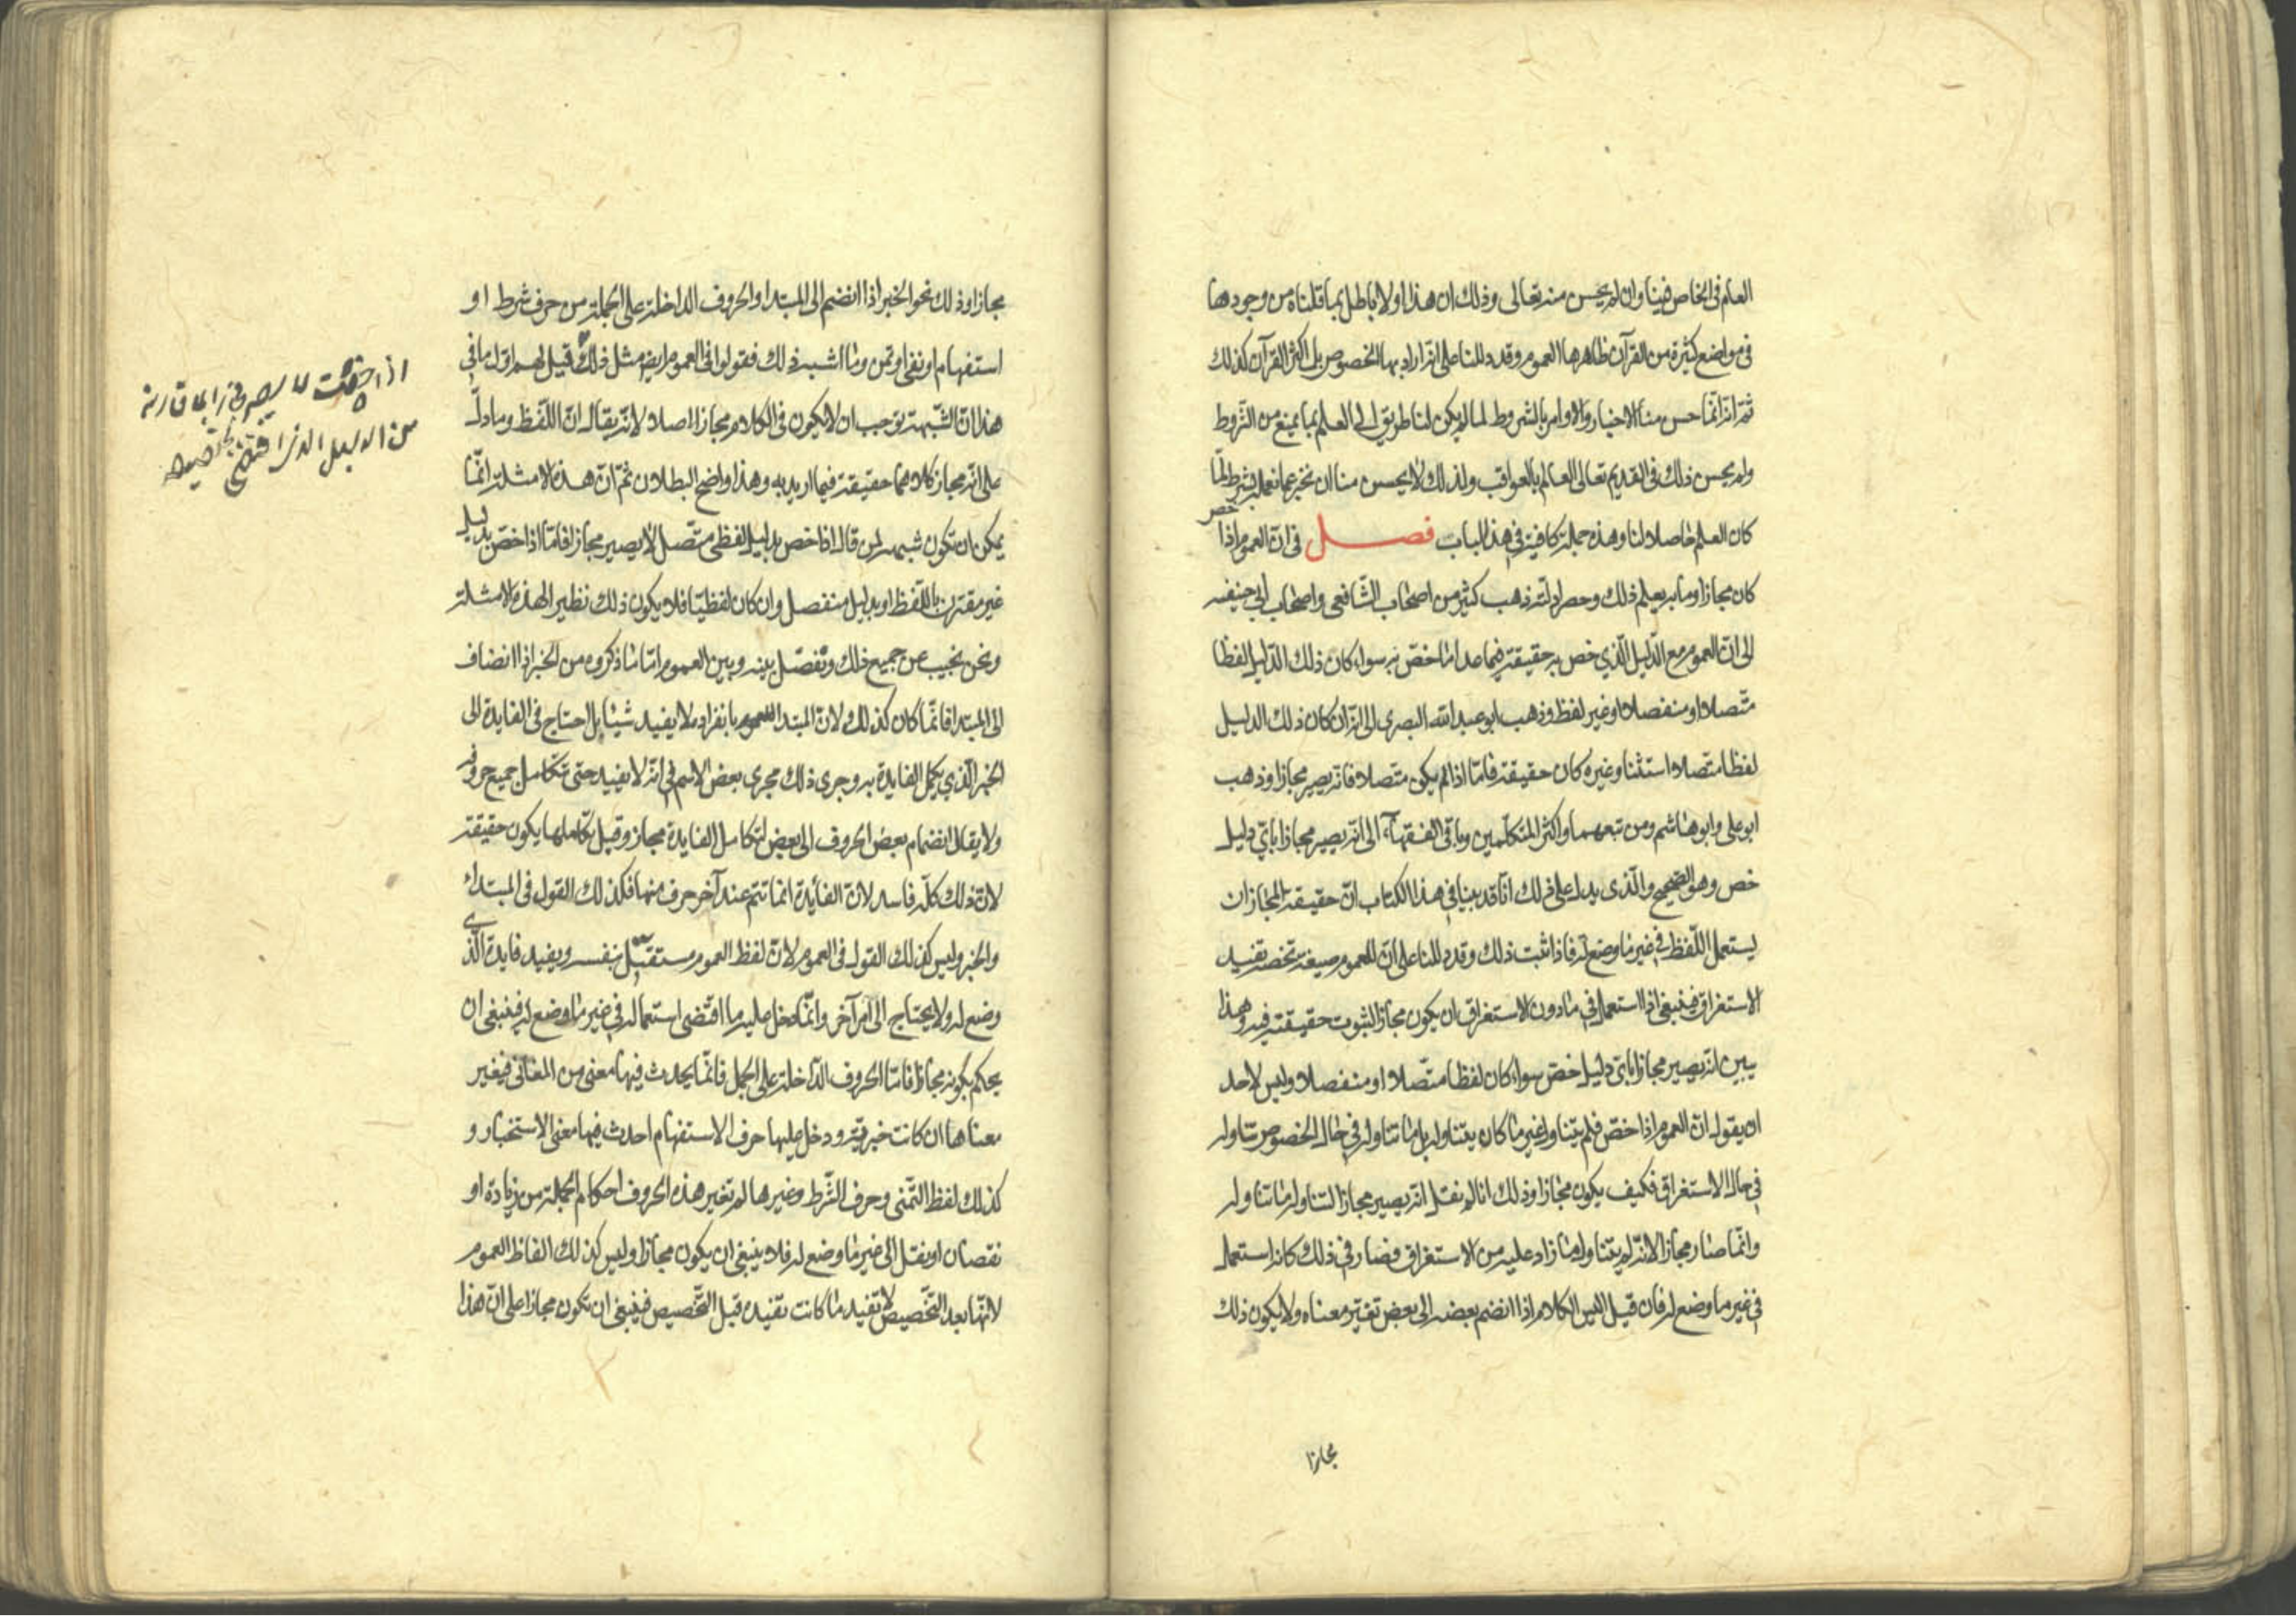 العام فى الخاص فينا وان لم يحسن منه تعالى وذلك ان هذا اولا باطل بما قلناه من وجودها
فى مواضع كثيرة من القرآن ظاهرها العموم وقد دللنا على انه اراد بها الخصوص بل اكثر القرآن كذلك
ثم انه انما حسن منا الاخبار والاوامر بالشروط لما لم يكن لنا طريق الى العلم بما يمنع من الشروط
ولم يحسن ذلك فى القديم تعالى العالم بالعواقب ولذلك لا يحسن منا ان نخبر عما نعمله بشرط لما
كان العلم حاصلا لنا وهذه جملة كافية فى هذا الباب فصل فى ان العموم اذا خص
كان مجازا وما به يعلم ذلك وحصر ادلته ذهب كثير من اصحاب الشافعى واصحاب ابى حنيفه
الى ان العموم مع الدليل الذي خص به حقيقة فيما عدا ما خص به سواء كان ذلك الدليل لفظا
متصلا او منفصلا او غير لفظ وذهب ابو عبد الله البصرى الى انه ان كان ذلك الدليل
لفظا متصلا استثنا وغيره كان حقيقة فاما اذا لم يكن متصلا فانه يصير مجازا وذهب
ابو على وابو هاشم ومن تبعهما واكثر المتكلمين وباقى الفقهآء الى انه يصير مجازا باي دليل
خص وهو الصحيح والذى يدل على ذلك انا قد بينا فى هذا الكتاب ان حقيقة المجاز ان
يستعمل اللفظ فى غير ما وضع له فاذا ثبت ذلك وقد دللنا على ان للعموم صيغة تخصه تفيد
الاستغراق فينبغى اذا استعمل فى ما دون الاستغراق ان يكون مجازا لثبوت حقيقته فيه وهذا
يبين انه يصير مجازا باى دليل خص سواء كان لفظا متصلا او منفصلا وليس لاحد
ان يقول ان العموم اذا خص فلم يتناول غير ما كان يتناوله بل ما تناوله فى حال الخصوص تناوله
فى حال الاستغراق فكيف يكون مجازا وذلك انا لم نقل انه يصير مجازا لتناوله ما تناوله
وانما صار مجازا لانه لم يتناول ما زاد عليه من الاستغراق فصار فى ذلك كانه استعمل
فى غير ما وضع له فان قيل اليس الكلام اذا انضم بعضه الى بعض تغير معناه ولا يكون ذلك
مجازا
مجازا وذلك نحو الخبر اذا انضم الى المبتدا والحروف الداخلة على الجملة من حرف شرط او
استفهام او نفى او تمن وما اشبه ذلك فقولوا فى العموم ايضا مثل ذلك قيل لهم اول ما فى
هذا ان الشبهة توجب ان لا يكون فى الكلام مجازا اصلا لانه يقال ان اللفظ وما دل
على انه مجاز كلاهما حقيقة فيما اريد به وهذا واضح البطلان ثم ان هذه الامثلة انما
يمكن ان تكون شبهة لمن قال اذا خص بدليل لفظى متصل لا يصير مجازا فاما اذا خص بدليل
غير مقترن باللفظ او بدليل منفصل وان كان لفظيا فلا يكون ذلك نظيرا لهذه الامثلة
ونحن نجيب عن جميع ذلك ونفصل بينه وبين العموم اما ما ذكروه من الخبر اذا انضاف
الى المبتدا فانما كان كذلك لان المبتدا بانفراده لا يفيد شيئا بل احتاج فى الفايدة الى
الخبر الذي يكمل الفايدة به وجرى ذلك مجرى بعض الاسم فى انه لا يفيد حتى تتكامل جميع حروفه
ولا يقال انضمام بعض الحروف الى بعض لتكامل الفايدة مجاز وقبل تكاملها يكون حقيقة
لان ذلك كله فاسد لان الفائدة انما تتم عند آخر حرف منها فكذلك القول فى المبتداء
والخبر وليس كذلك القول فى العموم لان لفظ العموم مستقل بنفسه ويفيد فايدة الذى
وضع له ولا يحتاج الى امر آخر وانما دخل عليه ما اقتضى استعماله فى غير ما وضع له فينبغى ان
يحكم بكونه مجازا فاما الحروف الداخلة على الجمل فانما يحدث فيها معنى من المعانى فيغير
معناها ان كانت خبرية ودخل عليها حرف الاستفهام احدث فيها معنى الاستخبار و
كذلك لفظ التمنى وحرف الشرط وغيرها لم تغير هذه الحروف احكام الجملة من زيادة او
نقصان او نقل الى غير ما وضع له فلا ينبغى ان يكون مجازا وليس كذلك الفاظ العموم
لانها بعد التخصيص لا تفيد ما كانت تفيده قبل التخصيص فينبغى ان تكون مجازا على ان هذا
اذا خصت لا يصير مجازا بما قارنه
من الدليل الذى اقتضى تخصيصه